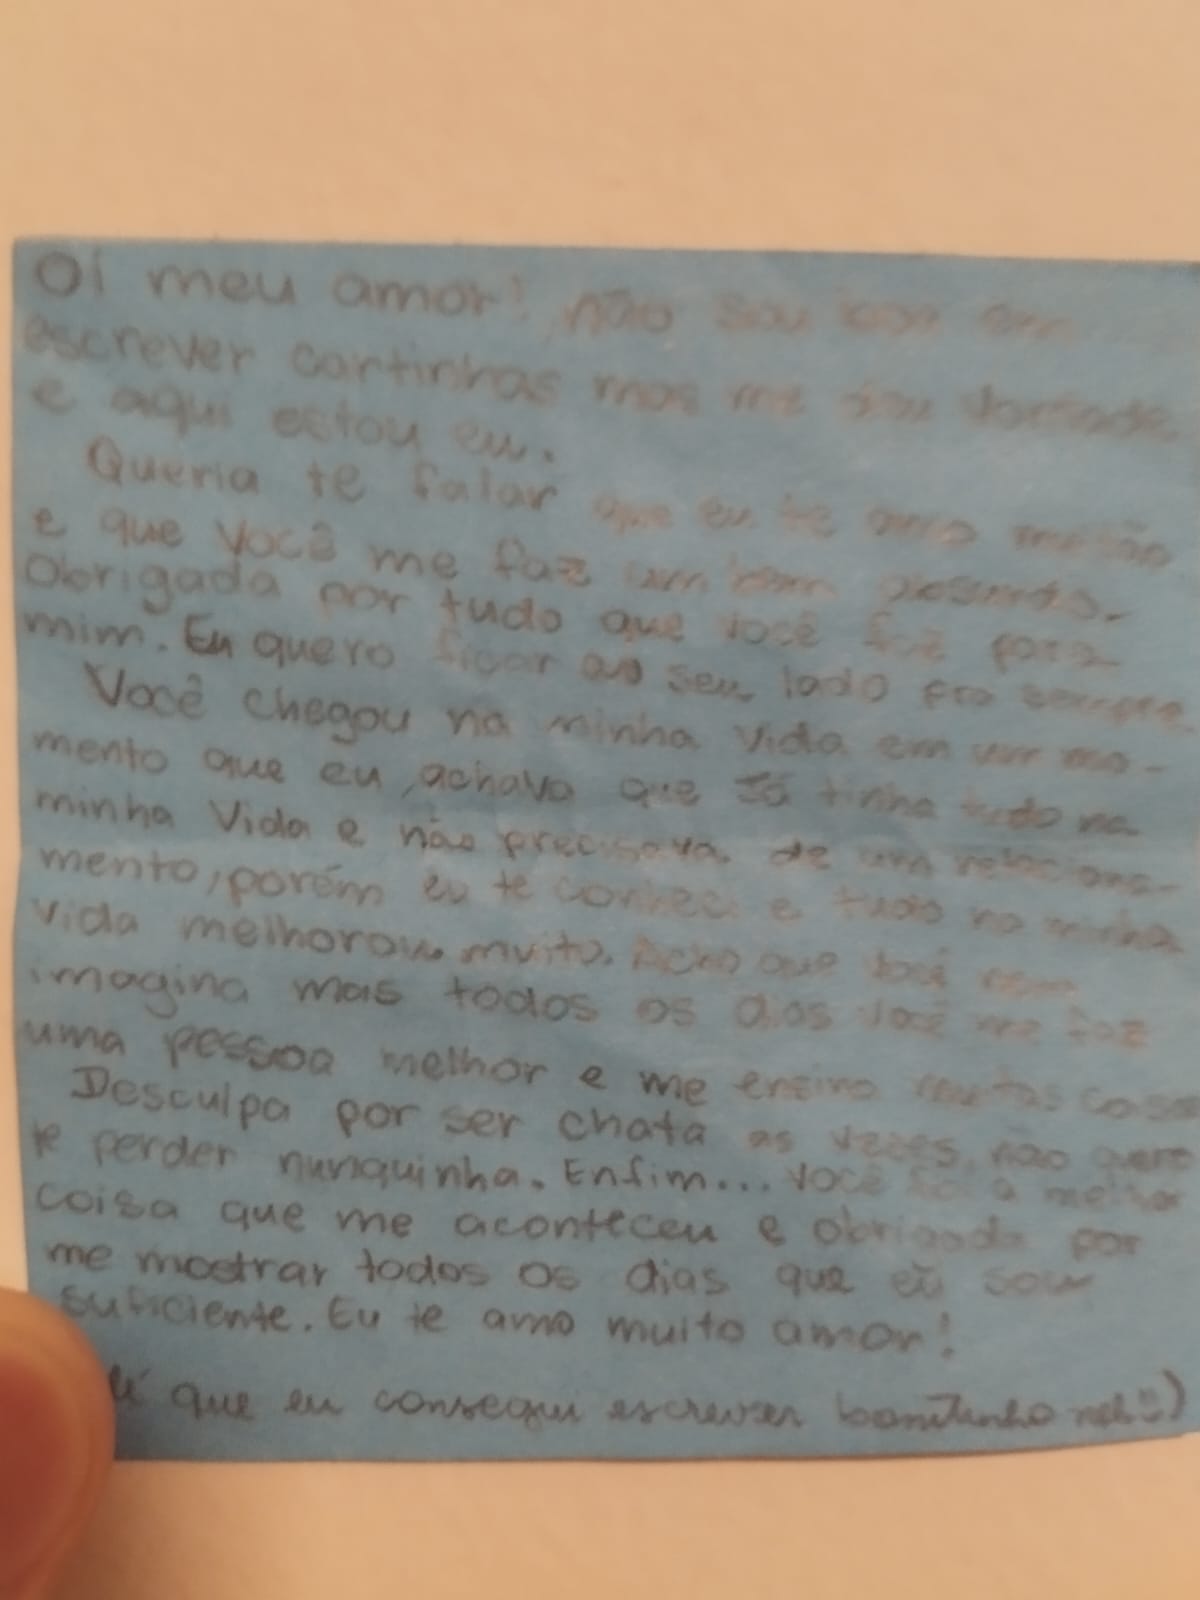 Oi meu amor! não sou boa em
escrever cartinhas mas me deu vontade
e aqui estou eu.
Queria te falar que eu te amo muitão
e que você me faz um bem absurdo.
Obrigada por tudo que você faz para
mim. Eu quero ficar ao seu lado pra sempre.
Você chegou na minha vida em um mo-
mento que eu achava que já tinha tudo na
minha vida e não precisava de um relaciona-
mento, porém eu te conheci e tudo na minha
vida melhorou muito. Acho que você nem
imagina mas todos os dias você me faz
uma pessoa melhor e me ensina muitas coisas
Desculpa por ser chata as vezes, não quero
te perder nunquinha. Enfim... Você foi a melhor
coisa que me aconteceu e obrigada por
me mostrar todos os dias que eu sou
suficiente. Eu te amo muito amor!
que eu consegui escrever bonitinho neh :)